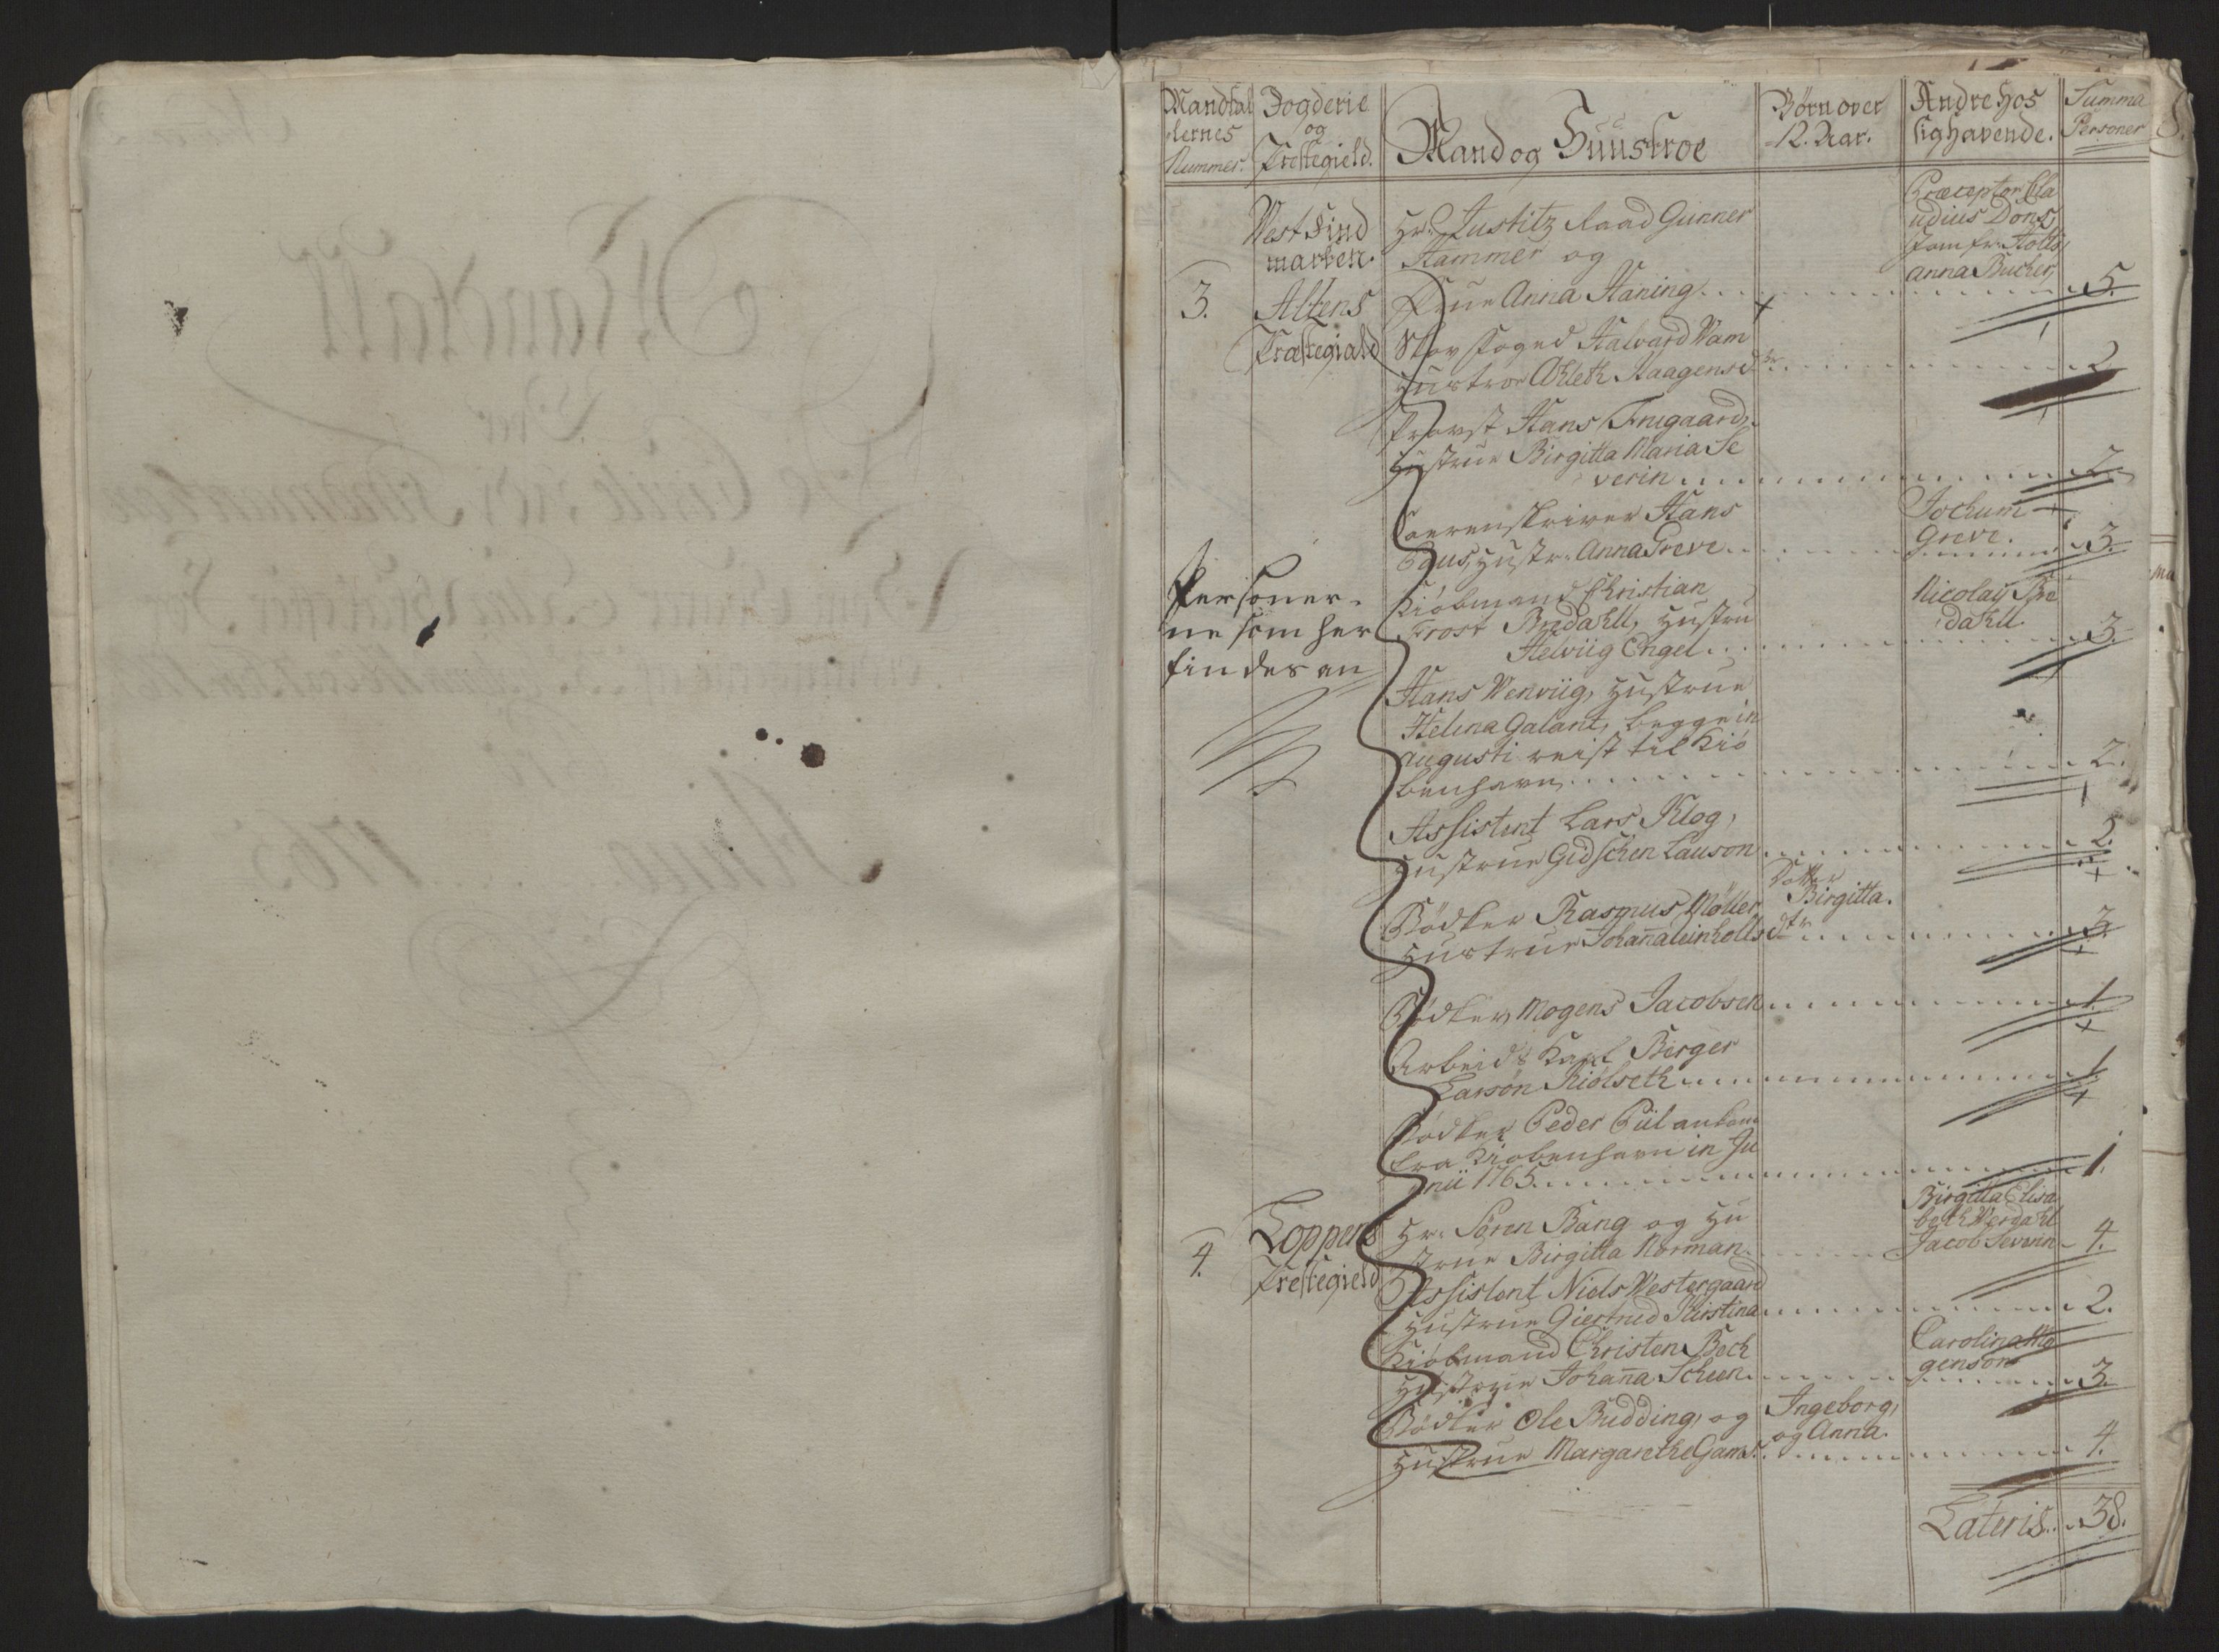 Mandtal
lernes
Nummer.
Fogderie
og
Prestegield.
Mand og Huustroe
Børn over
12. Aar.
Andre hos
sig havende.
Summa
Personer
West Find
marken.
3. Altens
Præstegiald
Hr. Justitz Raad Gunner
Hammer og
Frue Anna Haning
Præceptor Cla
udius Dons,
Jomfr.
anna Bucher,
5.
Skov foged Halvard Wam
Hustroe Ahleth Haagensdtr
2
Provst Hans Frugaard,
Hustrue Birgitta Maria Se
verin
2.
Hans
Paus, Hustr. Anna Greve
Jochum
Greve.
3.
Personer-
ne som her
findes an
Kiøbmand Christian
Frost Bredahll, Hustru
Helviig Engel
Nicolay Bre
dahll.
3.
Hans Wenviig, Hustrue
Helena Galant, begge in
Augusti reist til Kiø
benhavn
2.
Assistent Lars Klog,
Hustrue Gidschen Lauson
2.
Bødker Rasmus Møller
Hustrue Johanna leinholts dtr
Dotter
Birgitta.
3.
Bødker Mogens Jacobsen
1.
Arbeids Karl Berger
Larsøn Kiølseth
1.
Bødker Peder Piil ankom
fra Kiøbenhavn in Ju
nii 1765
1.
4. Loppens
Prestegield
Hr. Søren Bang og Hu
strue Birgitta Norman
Birgitta Elisa
beth Werdahl
Jacob Severin
4.
Assistent Niels Westergaard
Hustrue Giertrud Kirstina
2.
Kiøbmand Christen Beck
Hustrue Johanna Scheen
Carolina Mo
genson
3.
Bødker Ole Budding, og
Hustrue Margarethe Gams.
Ingeborg,
og Anna.
4.
Lateris 38.